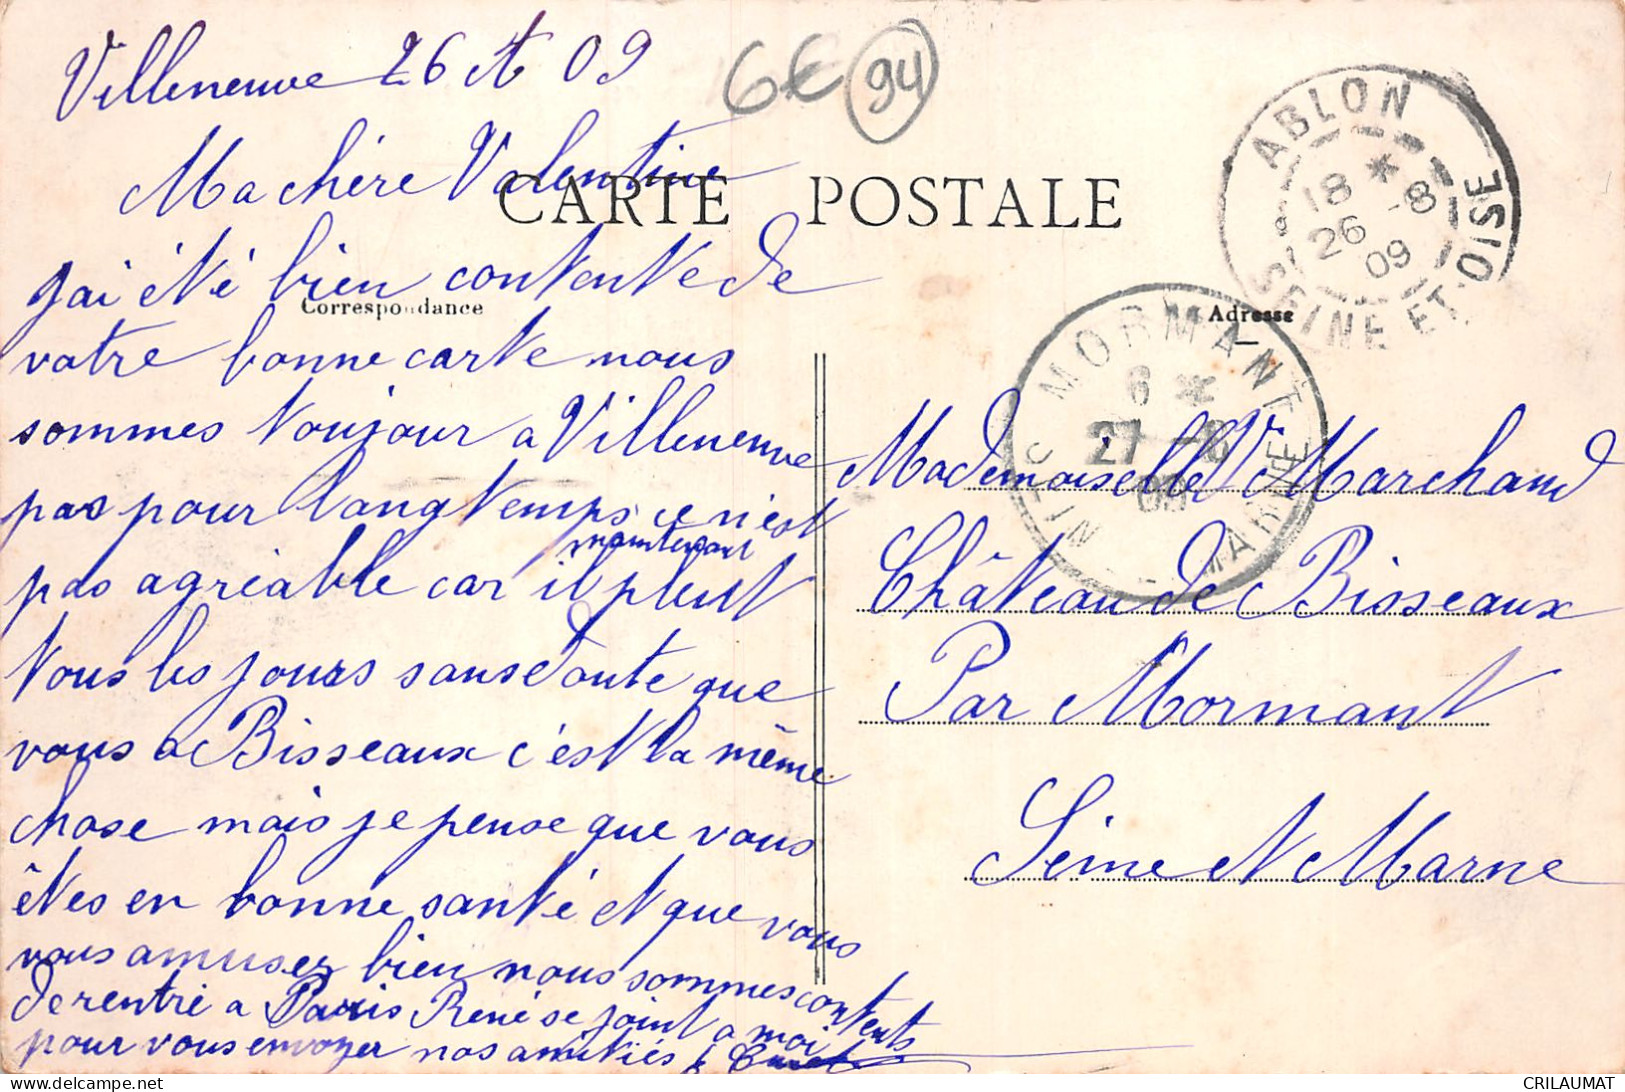 Villeneuve 26 At 09
6€ 94
Ma chère Valentine
CARTE POSTALE
ABLON
18 *
26 -8
09
SEINE ET OISE
j'ai été bien contente de
Correspondance
Adresse
votre bonne carte nous
sommes toujour a Villeneuve
pas pour longtemps ce n'est
maintenant
pas agréable car il pleut
tous les jours sans doute que
vous a Bisseaux c'est la même
chose mais je pense que vous
êtes en bonne santé et que vous
vous amuser bien nous sommes contents
de rentré a Paris René se joint a moi
pour vous envoyer nos amitiés
MORMANT
6 *
27 -8
09
MARNE
Mademoiselle V. Marchand
Château de Bisseaux
Par Mormant
Seine et Marne
delcampe.net
CRILAUMAT